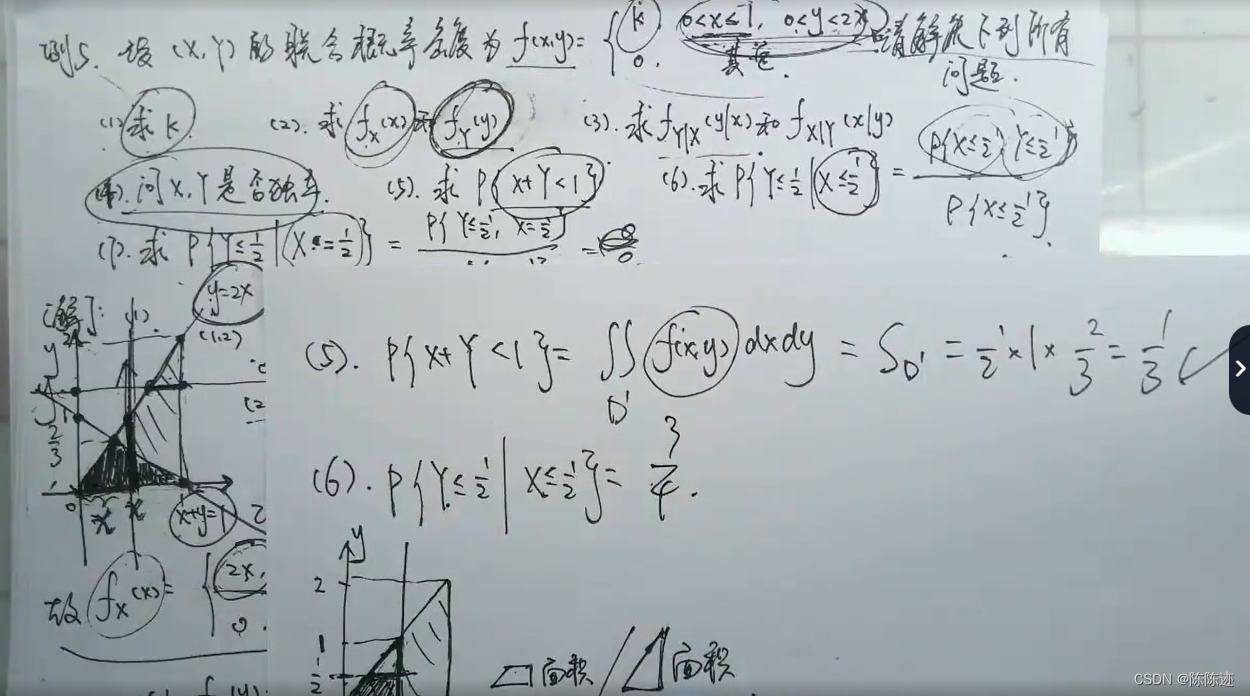 例5. 设(X,Y)的联合概率密度为 f(x,y)= { k, 0<x≤1, 0<y<2x 请解决下列所有
0, 其它. 问题.
(1) 求 k. (2). 求 f_X(x) 和 f_Y(y) (3). 求 f_{Y|X}(y|x) 和 f_{X|Y}(x|y)
(4). 问 X,Y 是否独立. (5). 求 P{X+Y<1}. (6). 求 P{Y≤1/2 | X≤1/2} = P{X≤1/2, Y≤1/2} / P{X≤1/2}.
(7). 求 P{Y≤1/2 | X=1/2} = P{Y≤1/2, X=1/2}
[解]: (1).
y=2x
(1,2)
y
2/3
0 x
x+y=1
故 f_X(x)= { 2x,
0.
(5). P{X+Y<1}= ∬_{D'} f(x,y)dxdy = S_{D'} = 1/2×1×2/3 = 1/3 ✓
(6). P{Y≤1/2 | X≤1/2}= 3/4.
y
2
1
1/2
面积 / 面积
CSDN @陈陈迹